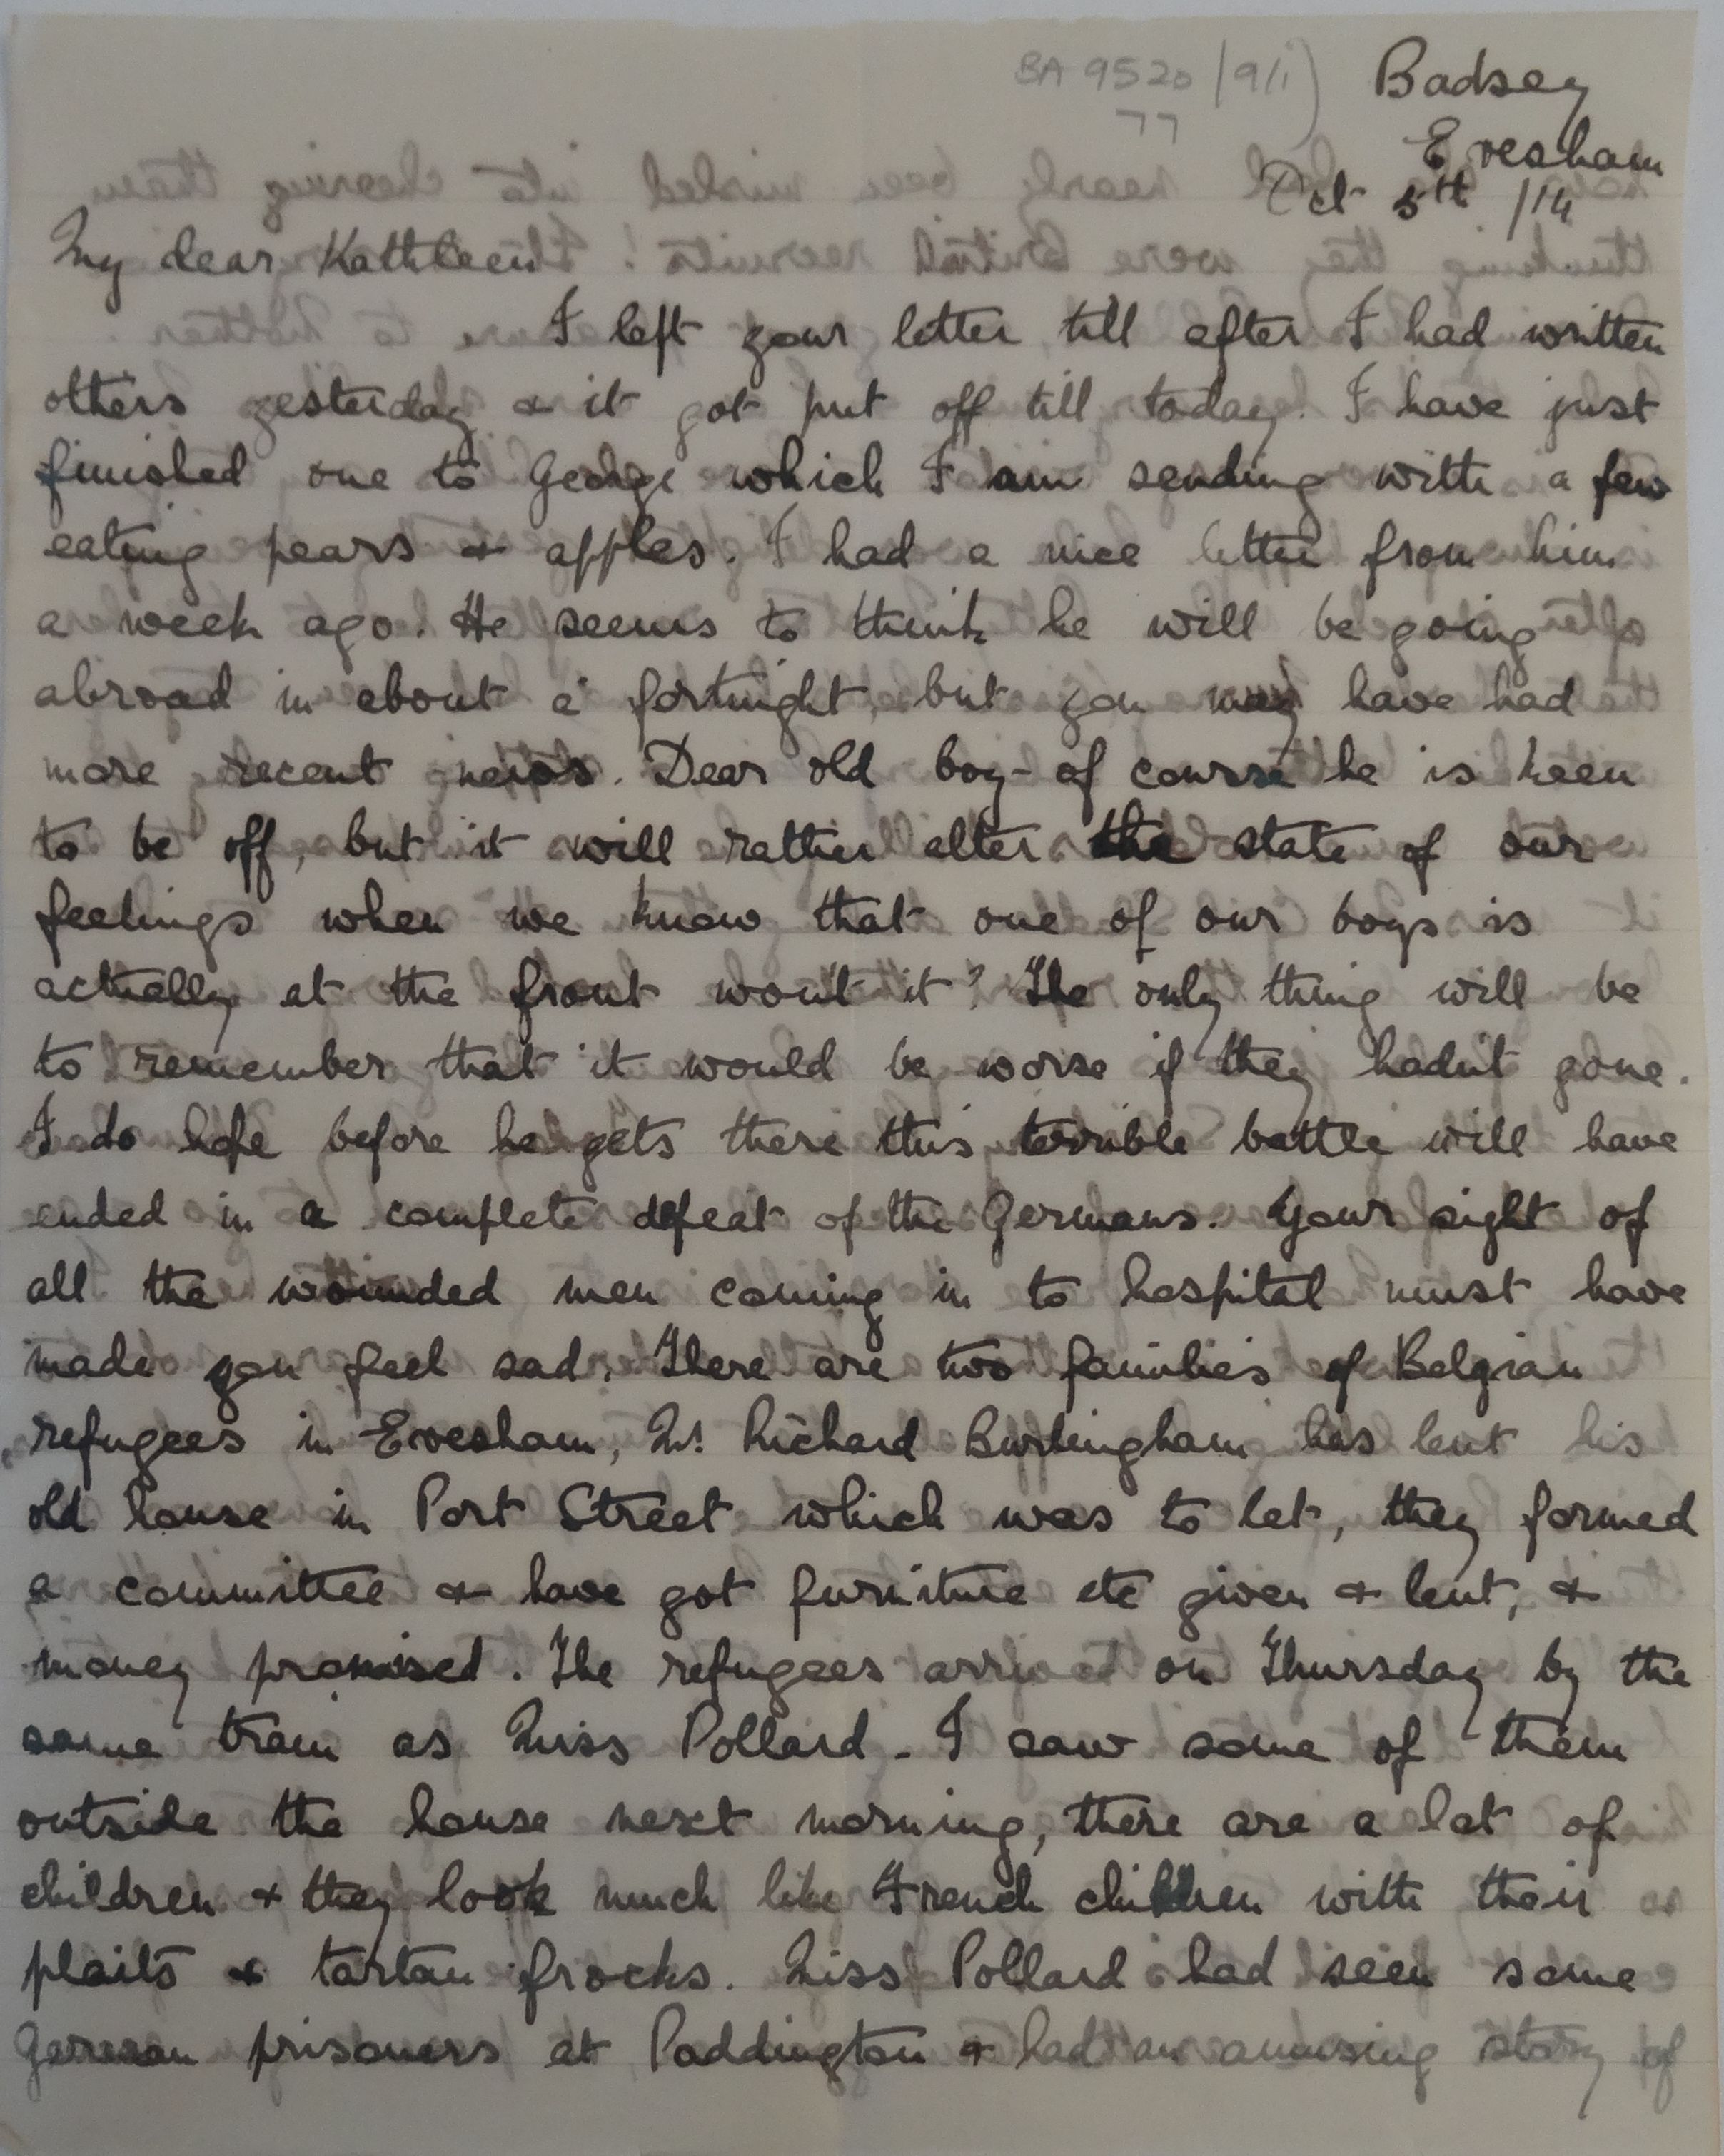 BA 9520/9/i)
77
Badsey
Evesham
Oct 5th /14
My dear Kathleen
I left your letter till after I had written
others yesterday & it got put off till today. I have just
finished one to George which I am sending with a few
eating pears & apples. I had a nice letter from him
a week ago. He seems to think he will be going
abroad in about a fortnight, but you may have had
more recent news. Dear old boy - of course he is keen
to be off, but it will rather alter the state of our
feelings when we know that one of our boys is
actually at the front won't it? The only thing will be
to remember that it would be worse if they hadn't gone.
I do hope before he gets there this terrible battle will have
ended in a complete defeat of the Germans. Your sight of
all the wounded men coming in to hospital must have
made you feel sad. There are two families of Belgian
refugees in Evesham, Mr Richard Burlingham has lent his
old house in Port Street which was to let, they formed
a committee & have got furniture etc given & lent, &
money promised. The refugees arrived on Thursday by the
same train as Miss Pollard - I saw some of them
outside the house next morning, there are a lot of
children & they look much like French children with their
plaits & tartan frocks. Miss Pollard had seen some
German prisoners at Paddington & had an amusing story of